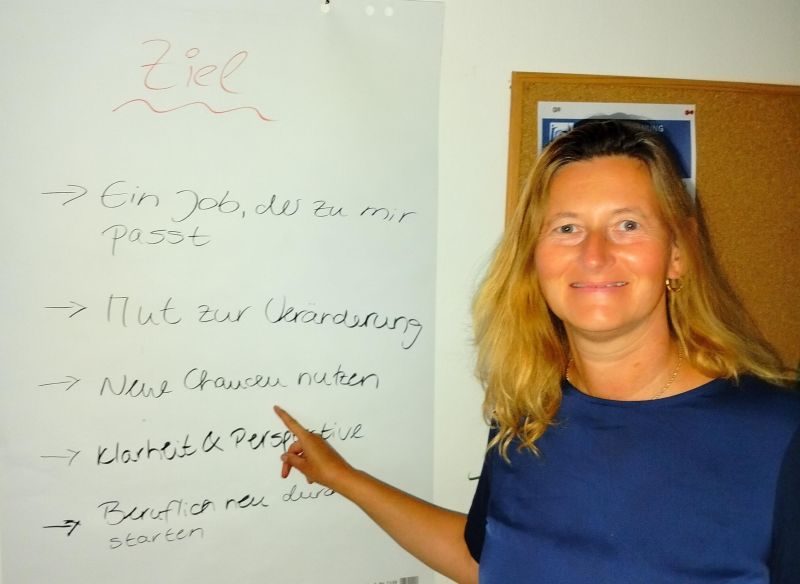 Ziel
→ Ein Job, der zu mir
passt
→ Mut zur Veränderung
→ Neue Chancen nutzen
→ Klarheit & Perspektive
→ Beruflich neu durch
starten